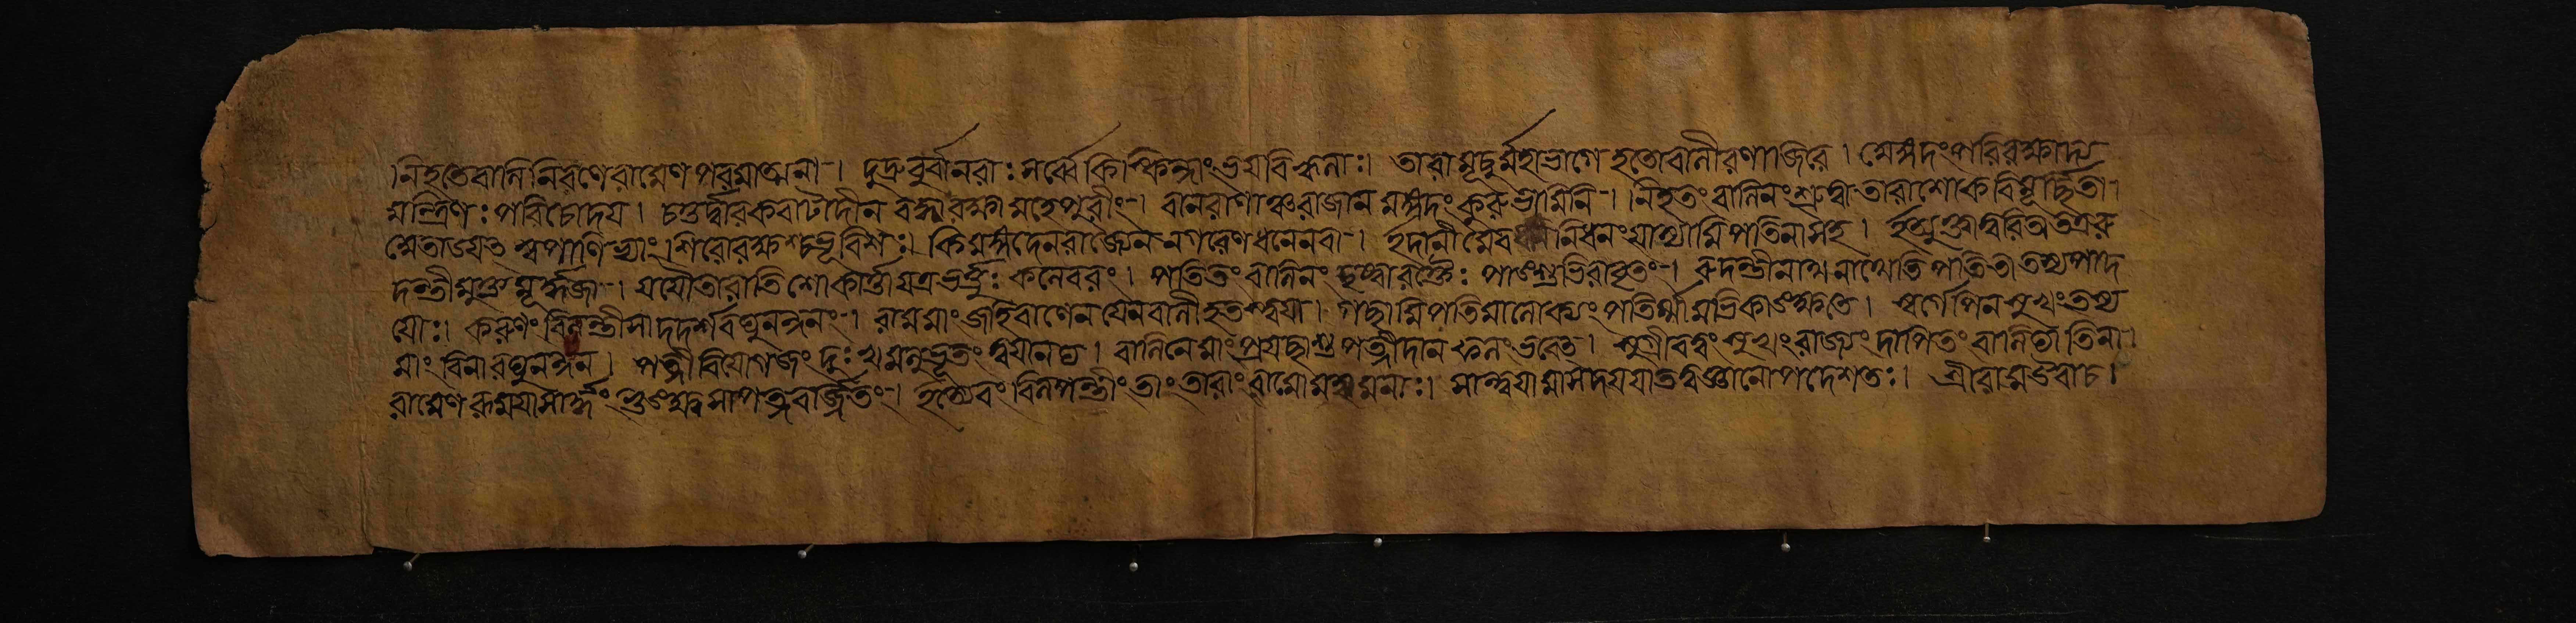 ।নিহতেবালিনিরণেরামেণপরমাত্মনা।দুদ্রুবুর্বানরাঃসর্ব্বেকিষ্কিন্ধাংভয়বিহ্বলাঃ।তারামূচুর্মহাভাগেহতোবালীরণাজিরে।অঙ্গদংপরিরক্ষাদ্য
মন্ত্রিণঃপরিচোদয়।চতুর্দ্বারকবাটাদীনবদ্ধারক্ষামহেপুরীং।বানরাণাঞ্চরাজানমঙ্গদংকুরুভামিনি।নিহতংবালিনংশ্রুত্বাতারাশোকবিমূর্চ্ছিতা
অতাডয়ৎস্বপাণিভ্যাংশিরোবক্ষশ্চভূরিশঃ।কিমঙ্গদেনরাজ্যেননগরেণধনেনবা।ইদানীমেবনিধনংযাস্যামিপতিনাসহ।ইত্যুক্ত্বাত্বরিতাতত্ররু
দন্তীমুক্তমূর্দ্ধজা।যযৌতারাতিশোকার্ত্তাযত্রভর্ত্তুঃকলেবরং।পতিতংবালিনংদৃষ্ট্বারক্তৈঃপাংশুভিরাবৃতং।রুদন্তীনাথনাথেতিপতিতাতস্যপাদ
য়োঃ।করুণংবিলপন্তীসাদদর্শরঘুনন্দনং।রামমাংজহিবাণেনযেনবালীহতস্ত্বয়া।গচ্ছামিপতিসালোক্যংপতির্ম্মামভিকাঙ্ক্ষতে।স্বর্গেপিনসুখংতস্য
মাংবিনারঘুনন্দন।পত্নীবিয়োগজংদুঃখমনুভূতংত্বয়ানঘ।বালিনেমাংপ্রযচ্ছাশুপত্নীদানফলংভবেৎ।সুগ্রীবত্বংসুখংরাজ্যংদাপিতংবালিঘাতিনা
রামেণরুময়াসার্দ্ধংভুঙ্ক্ষ্বসাপত্নবর্জ্জিতং।ইত্যেবংবিলপন্তীংতাংতারাংরামোমহামনাঃ।সান্ত্বয়ামাসদয়য়াতত্ত্বজ্ঞানোপদেশতঃ।শ্রীরামউবাচ।